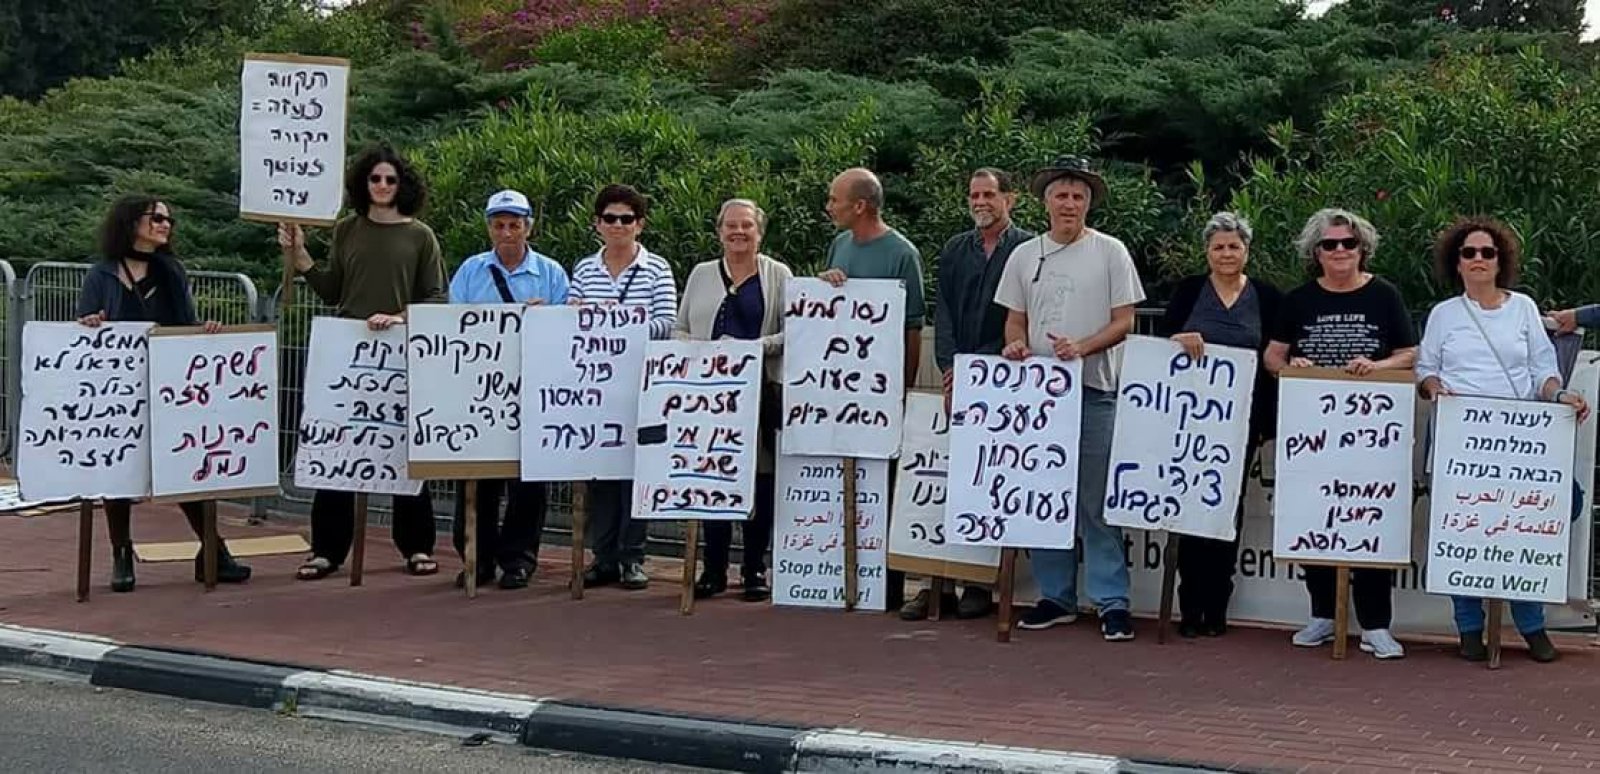 תקווה
לעזה =
תקווה
לעוטף
עזה
ממשלת
ישראל לא
יכולה
להתנער
מאחריותה
לעזה
לשקם
את עזה
לבנות
נמל
שיקום
כלכלת
עזה -
יכול למנוע
הסלמה
חיים
ותקווה
משני
צידי
הגבול
העולם
שותק
מול
האסון
בעזה
לשני מיליון
עזתים
אין מי
שתיה
בברזים!!
נסו לחיות
עם
3 שעות
חשמל ביום
המלחמה
הבאה בעזה!
اوقفوا الحرب
القادمة في غزة!
Stop the Next
Gaza War!
פרנסה
לעזה =
בטחון
לעוטף
עזה
חיים
ותקווה
בשני
צידי
הגבול
בעזה
ילדים מתים
ממחסור
במזון
ותרופות
לעצור את
המלחמה
הבאה בעזה!
اوقفوا الحرب
القادمة في غزة!
Stop the Next
Gaza War!
LOVE LIFE